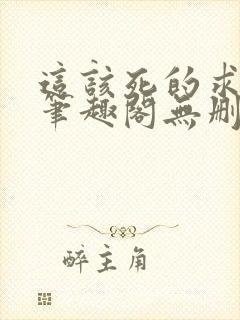 這該死的求
筆趣閣無刪
醉主角